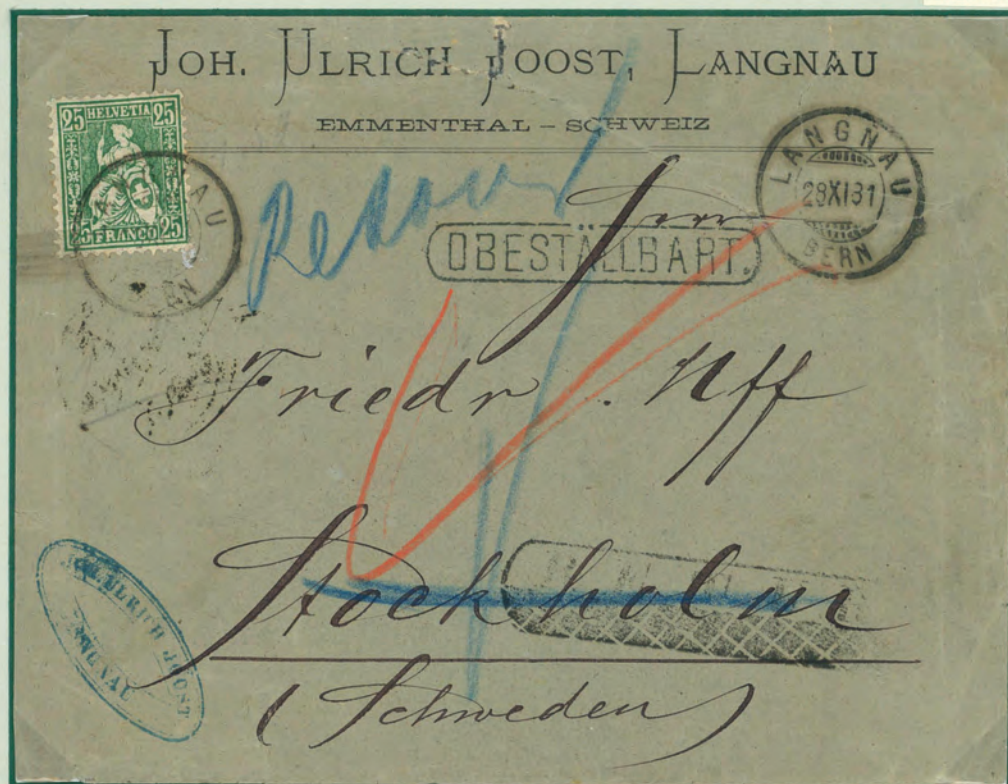 JOH. ULRICH JOOST, LANGNAU
EMMENTHAL – SCHWEIZ
25 HELVETIA 25
25 FRANCO 25
LANGNAU
28 XI 81
BERN
Retour
Herrn
OBESTÄLLBART.
Friedr. Uff
Stockholm
(Schweden)
JOH. ULRICH JOOST
LANGNAU